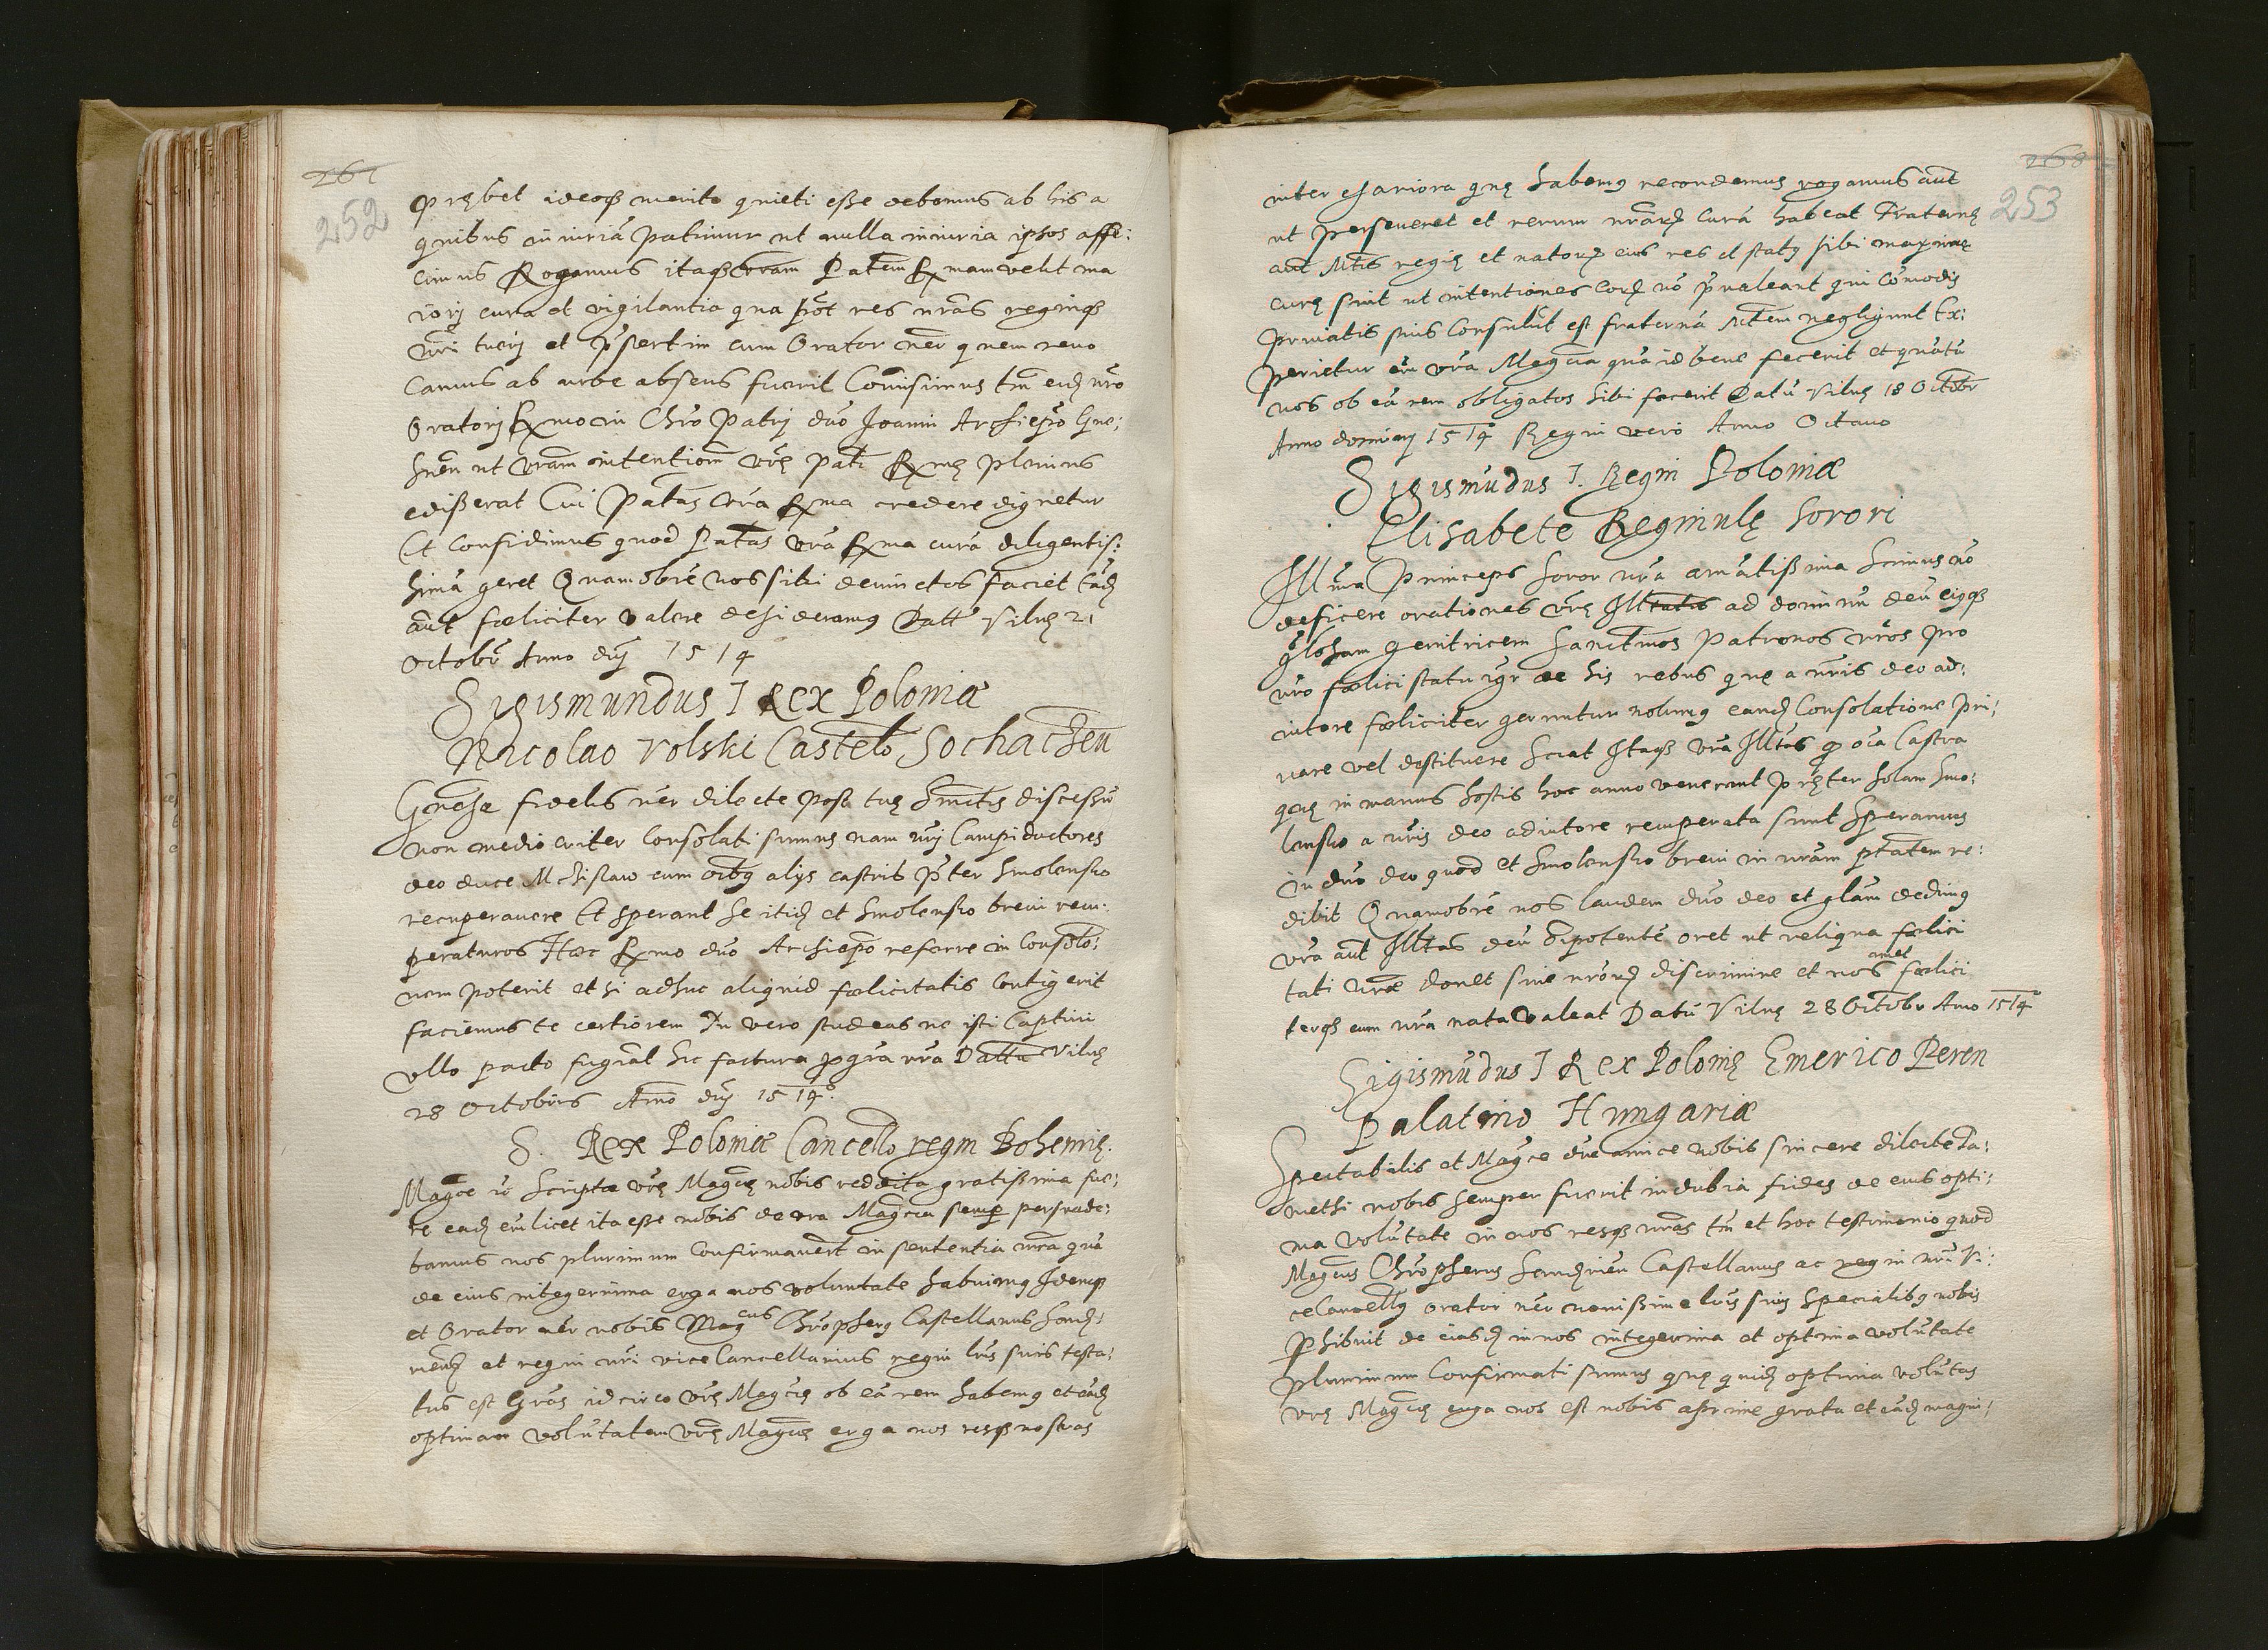 267
252
prębet ideoqȝ merito quieti eße debemus ab his a
quibus iniuriā patimur ut nulla iniuria ipsos affi:
cimus Rogamus itaqȝ vram Patem Rx mam velit ma
iorj cura et vigilantia qua pōt res nras regniqȝ
nri tuerj et pʼsertim cum Orator ner quem reuo
camus ab urbe absens fuerit Comisimus tm eidȝ nro
Oratorj Rx mo in Chrō Patrj dno Joanni Archiepō Gne:
snēn ut vram intentiom vrę patī Rx mę plenius
edißerat Cui Patas vra Rx ma credere dignetur
Et confidimus quod Patas vra Rx ma curā diligentis:
simā geret Quamobrē nos sibi deuinctos faciet eādȝ
aūt fœliciter valere desideramȝ Datt Vilnę 21
Octobr Anno dnj 1514
Sigismundus I Rex Poloniæ
Nicolao Volski Castelō Sochaczēn
Gnēse fidelis ner dilecte post tuę Snctis discessū
non mediocriter consolati sumus nam nrj Campi ductores
deo duce Mchislaw cum oībȝ alijs castris pʼter Smolensko
recuperauere Et sperant se itidȝ et Smolensko breui recu:
peraturos Hæc Rx mo dno Archiepō referre in consolō:
nem poterit et si adhuc aliquid fœlicitatis contigerit
faciemus te certiorem Tu vero studeas ne isti Captiui
vllo pacto fugiāt sic factura p gra nra Dattū Vilnę
28 Octobris Anno dnj 1514º.
S. Rex Poloniæ Cancellō regni Bohemię.
Magce vr Scripta vrę Magcię nobis reddita gratißima fue:
re eadȝ em licet ita eße nobis de vra Magcia semp persuade:
bamus nos plurimum confirmauert in sententia nra quā
de eius integerrima erga nos voluntate habuimȝ Idemqȝ
et Orator ner nobis Magcus Chrōpherȝ Castellanus Sendȝ:
mienȝ et regni nri vice Cancellarius regni lris suis testa:
tus est Gras idcirco vrę Magcię ob eā rem habemȝ et eādȝ
optimam volūtatem vrę Magcię erga nos resqȝ nostras
268
253
inter chariora quę habemȝ recondemus rogamus aūt
ut perseueret et rerum nrarȝ curā habeat Fraternę
aūt Mtis regię et natorȝ eius res et statȝ sibi maximę
curę sint ut intentiones eorȝ nō pʼualeant qui cōmodis
priuatis suis consulūt est fraternā Mtem negligunt Ex:
perietur em vra Magcia quā id bene fecerit et quātū
nos ob eā rem obligatos sibi fecerit Datū Vilnę 18 Octobr
Anno dominj 1514 Regni vero Anno Octauo
Sigismūdus I. Regni Poloniæ
Elisabete Reginulę Sorori
Illma Princeps Soror nra amātißima Scimus nō
deficere orationes vrę Illtatis ad dominū deū eiȝqȝ
glōsam genitricem Sanctmos Patronos nros pro
nro fœlici statu igr de his rebus quę a nris deo ad:
iutore fœliciter geruntur nolumȝ eandȝ Consolatione pri:
uare vel destituere Sciat Itaqȝ vra Illtas qp oīa Castra
quę in manus hostis hoc anno venerunt pręter solam Smo:
lensko a nris deo adiutore recuperata sunt Speramus
in dno deo quod et Smolensko breui in nram ptatem re:
dibit Quamobrē nos laudem dno deo et glām dedimȝ
vra aūt Illtas deū oīpotentē oret ut reliqua fœlici
tati nræ donet sine nrorȝ discrimine et nos amet fœlici
terqȝ cum nra nata valeat Datū Vilnę 28 Octobr Ano 1514
Sigismūdus I Rex Polonię Emerico Peren
Palatino Hungariæ
Spectabilis et Magce dne amice nobis sincere dilecte Ta:
metsi nobis semper fuerit indubia fides de eius opti:
ma volūtate in nos resqȝ nras tm et hoc testimonio quod
Magcus Chrōpherus Sendȝmien Castellanus ac regni nri Vi:
ceCancellȝ orator ner nouißime lris suis specialibȝ nobis
phibuit de eiusdȝ in nos integerima et optima volūtate
plurimum Confirmati sumus quę quidȝ optima volūtas
vrę Magcię erga nos est nobis aprime grata et eādȝ magni: